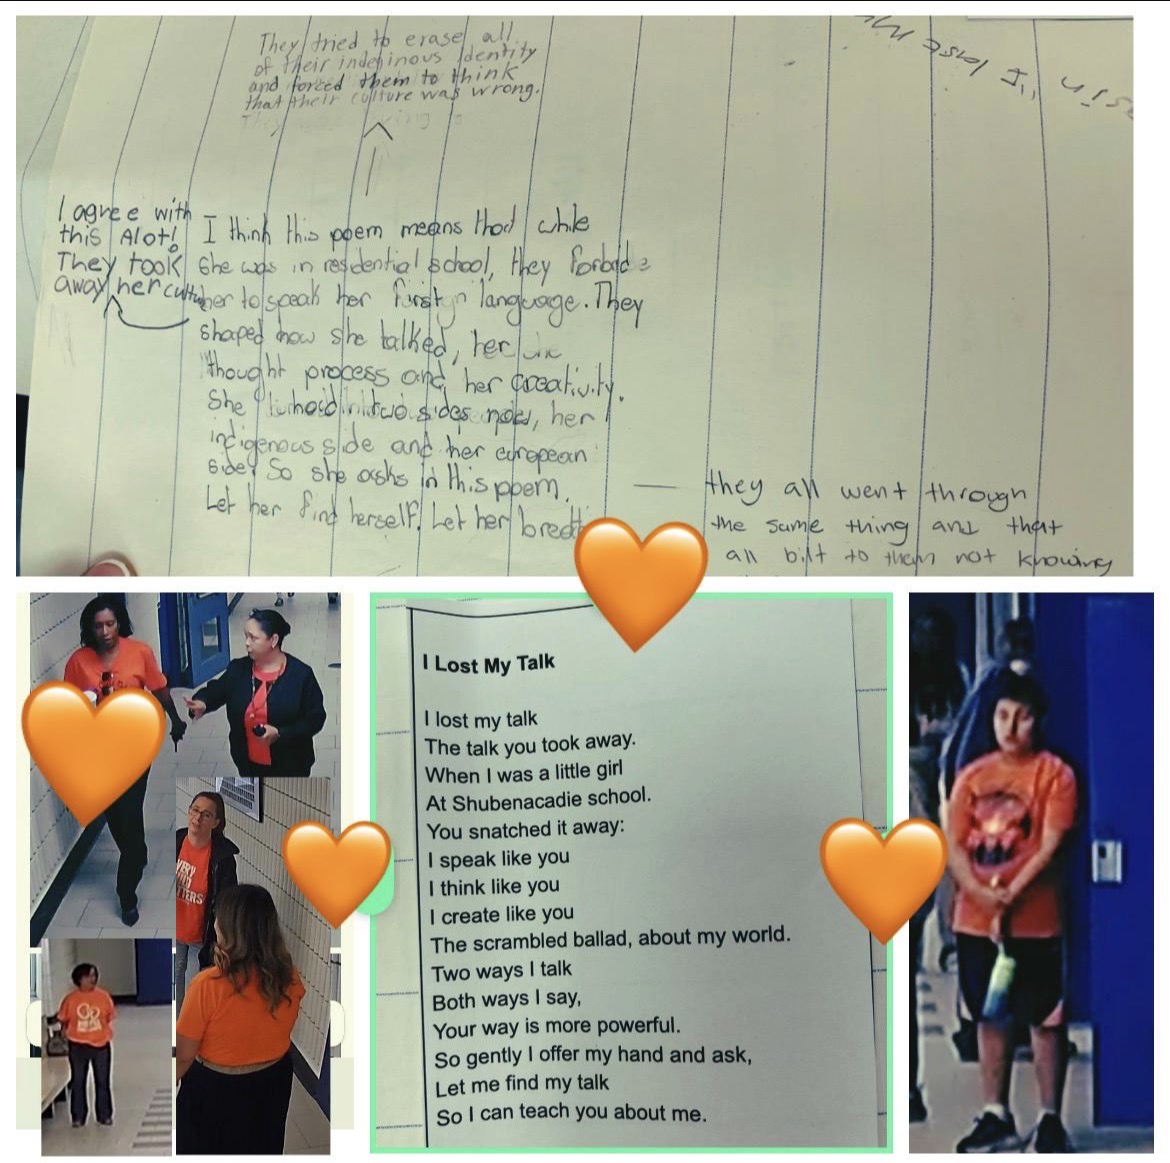 They tried to erase all
of their indeginous identity
and forced them to think
that their culture was wrong.
I agree with
this Alot!
They took
away her
I think this poem means
she was in residential school, they
her to speak her first language. They
shaped how she talked, her
thought process and her creativity.
She two sides now, her
indigenous side and her european
side. So she asks in this poem.
Let her find herself. Let her
they all went through
the same thing and that
all bilt to them not knowing
I Lost My Talk
I lost my talk
The talk you took away.
When I was a little girl
At Shubenacadie school.
You snatched it away:
I speak like you
I think like you
I create like you
The scrambled ballad, about my world.
Two ways I talk
Both ways I say,
Your way is more powerful.
So gently I offer my hand and ask,
Let me find my talk
So I can teach you about me.